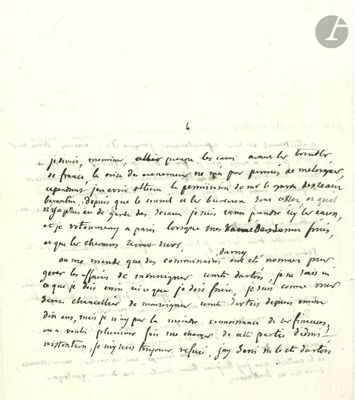 je devois, monsieur, aller prendre les eaux avant les troubles
de france la crise des evenemens ne m'a pas permis de m'eloigner,
cependant j'en avois obtenu la permission de mr le garde des sceaux
barentin. depuis que le conseil et les bureaux sont
n'y a plus eu de garde des sceaux je suis venu prendre icy les eaux,
et je retourneray a paris lorsque mes
et que les chemins seront surs.
on me mande que des commissaires ont été nommés pour
gerer les affaires de monseigneur comte dartois, je ne sais ni
ce que je dois croire ni ce que je dois faire, je suis comme
chancelier de monseigneur comte dartois depuis environ
dix ans, mais je n'ay pas la moindre connoissance de ses finances,
on a voulu plusieurs fois me charger de cette partie dadmi
nistration, je m'y suis toujours refusé, j'ay